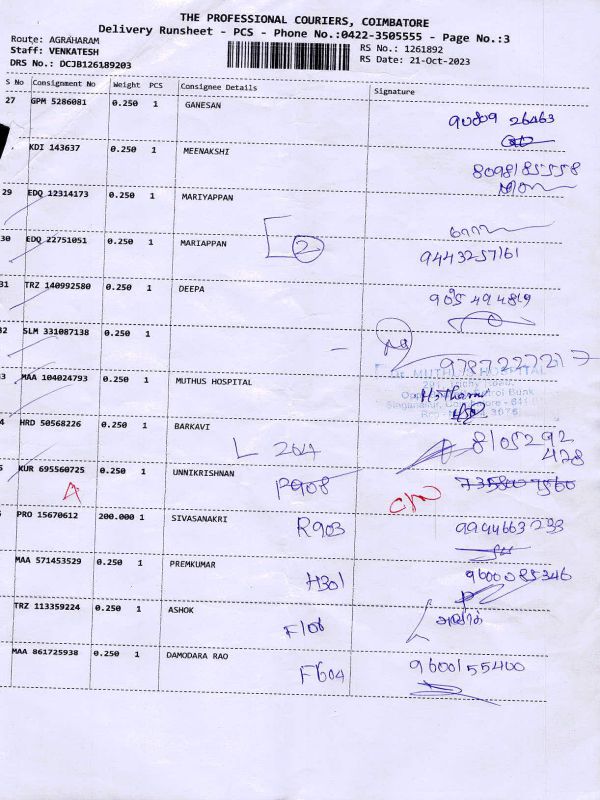 THE PROFESSIONAL COURIERS, COIMBATORE
Delivery Runsheet - PCS - Phone No.:0422-3505555 - Page No.:3
Route: AGRAHARAM
Staff: VENKATESH
DRS No.: DCJB126189203
RS No.: 1261892
RS Date: 21-Oct-2023
S No Consignment No Weight PCS Consignee Details Signature
27 GPM 5286081 0.250 1 GANESAN
26463
KDI 143637 0.250 1 MEENAKSHI
8098185558
29 EDQ 12314173 0.250 1 MARIYAPPAN
30 EDQ 22751051 0.250 1 MARIAPPAN 2
9443257161
31 TRZ 140992580 0.250 1 DEEPA
494819
32 SLM 331087138 0.250 1
9787227217
MAA 104024793 0.250 1 MUTHUS HOSPITAL
MUTHU'S HOSPITAL
HRD 50568226 0.250 1 BARKAVI
L 204
8105292
428
KUR 695560725 0.250 1 UNNIKRISHNAN
A P908 C/N 7358007560
PRO 15670612 200.000 1 SIVASANAKRI
R903 9944663233
MAA 571453529 0.250 1 PREMKUMAR
H301 9600085346
TRZ 113359224 0.250 1 ASHOK
F108
MAA 861725938 0.250 1 DAMODARA RAO
F604 9600155400